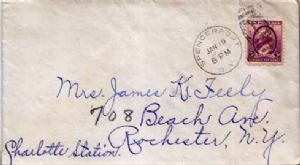 SPENCERPORT
JAN 19
8 PM
N.Y.
Mrs. James K. Feely
708 Beach Ave.
Rochester, N.Y.
Charlotte Station.